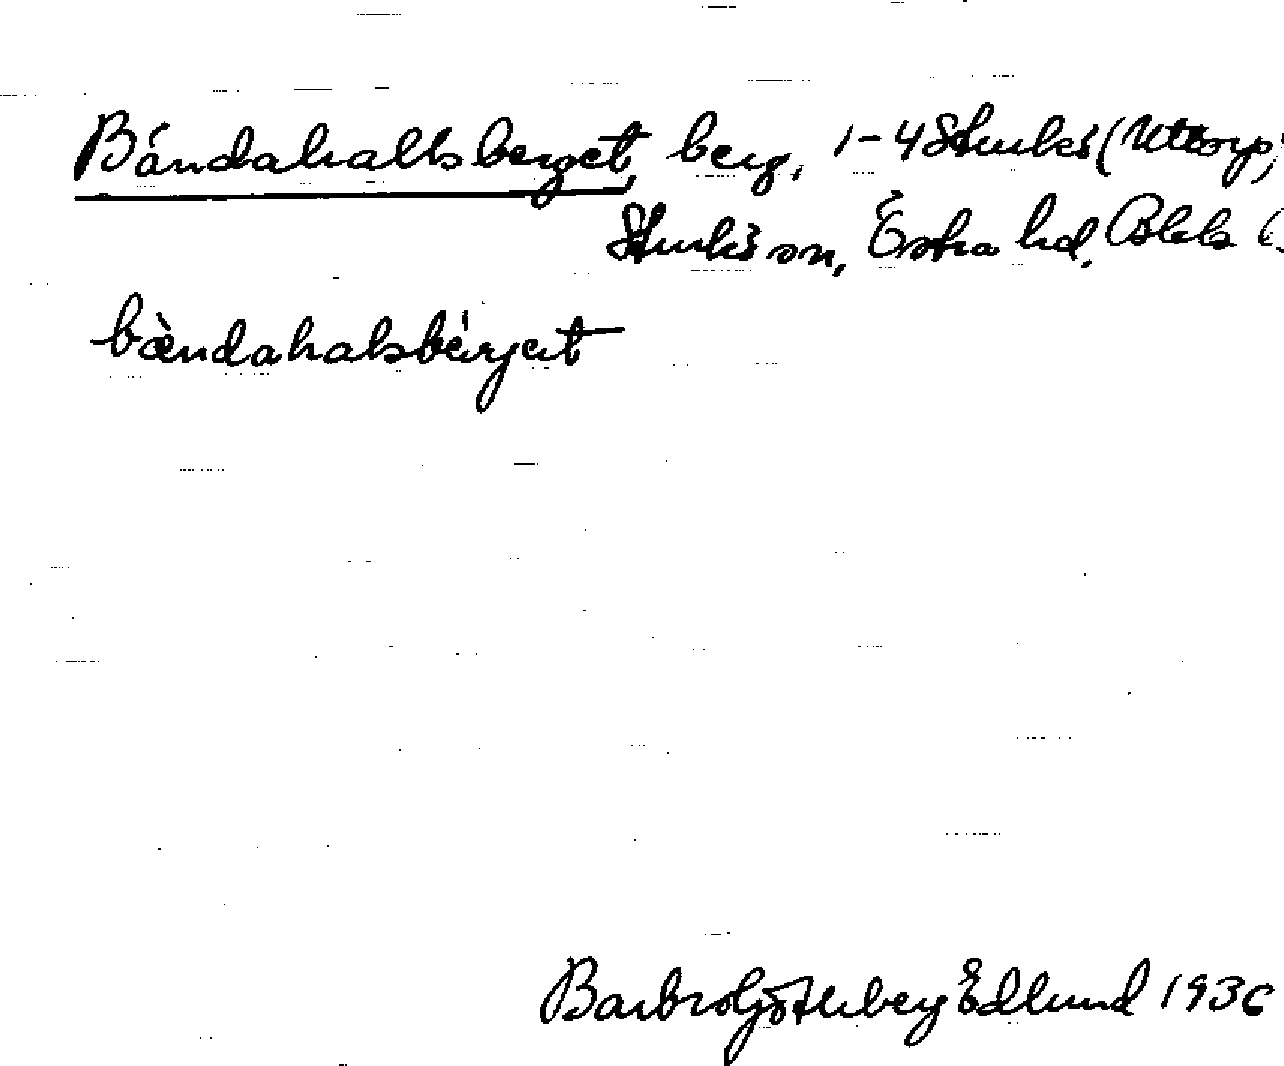 Bándahallsberget, berg, 1-4 Sturkö (Uttorp)
Sturkö sn, Östra hd, Blek l.
bàndahalsbärjet
Barbro Götherberg Edlund 1936